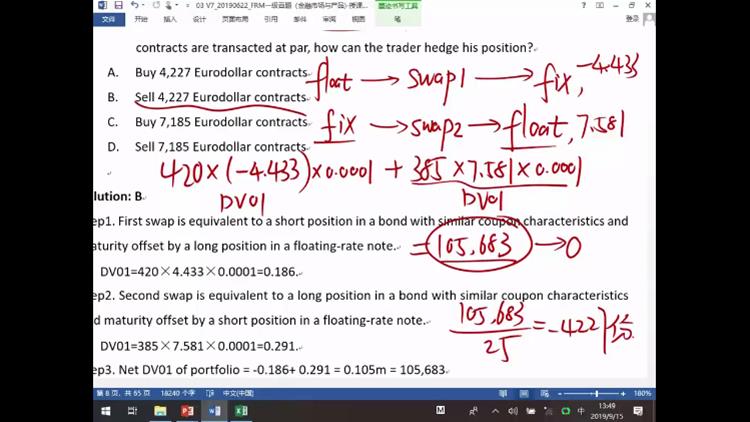 03 V7_20190622_FRM一级百题（金融市场与产品)-授课...
墨迹书写工具
文件 开始 插入 设计 页面布局 引用 邮件 审阅 视图 笔
登录
contracts are transacted at par, how can the trader hedge his position?
A. Buy 4,227 Eurodollar contracts
float → swap1 → fix, -4.433
B. Sell 4,227 Eurodollar contracts
C. Buy 7,185 Eurodollar contracts
fix → swap2 → float, 7.581
D. Sell 7,185 Eurodollar contracts
420×(-4.433)×0.0001 + 385×7.581×0.0001
DV01 DV01
lution: B
ep1. First swap is equivalent to a short position in a bond with similar coupon characteristics and
aturity offset by a long position in a floating-rate note.
= 105,683 → 0
DV01=420×4.433×0.0001=0.186.
ep2. Second swap is equivalent to a long position in a bond with similar coupon characteristics
d maturity offset by a short position in a floating-rate note.
105,683 / 25 = -4227份
DV01=385×7.581×0.0001=0.291.
ep3. Net DV01 of portfolio = -0.186+ 0.291 = 0.105m = 105,683
第 8 页，共 65 页 18240 个字 中文(中国) 180%
中 13:49
2019/9/15